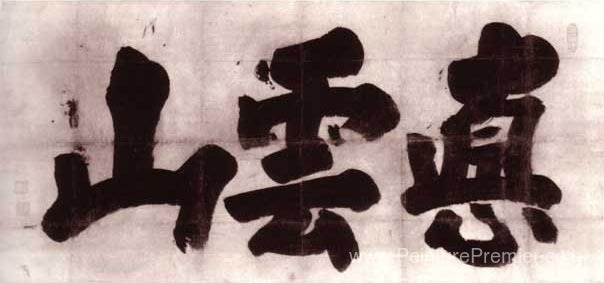 悳雲山
www.PeinturePremier.com